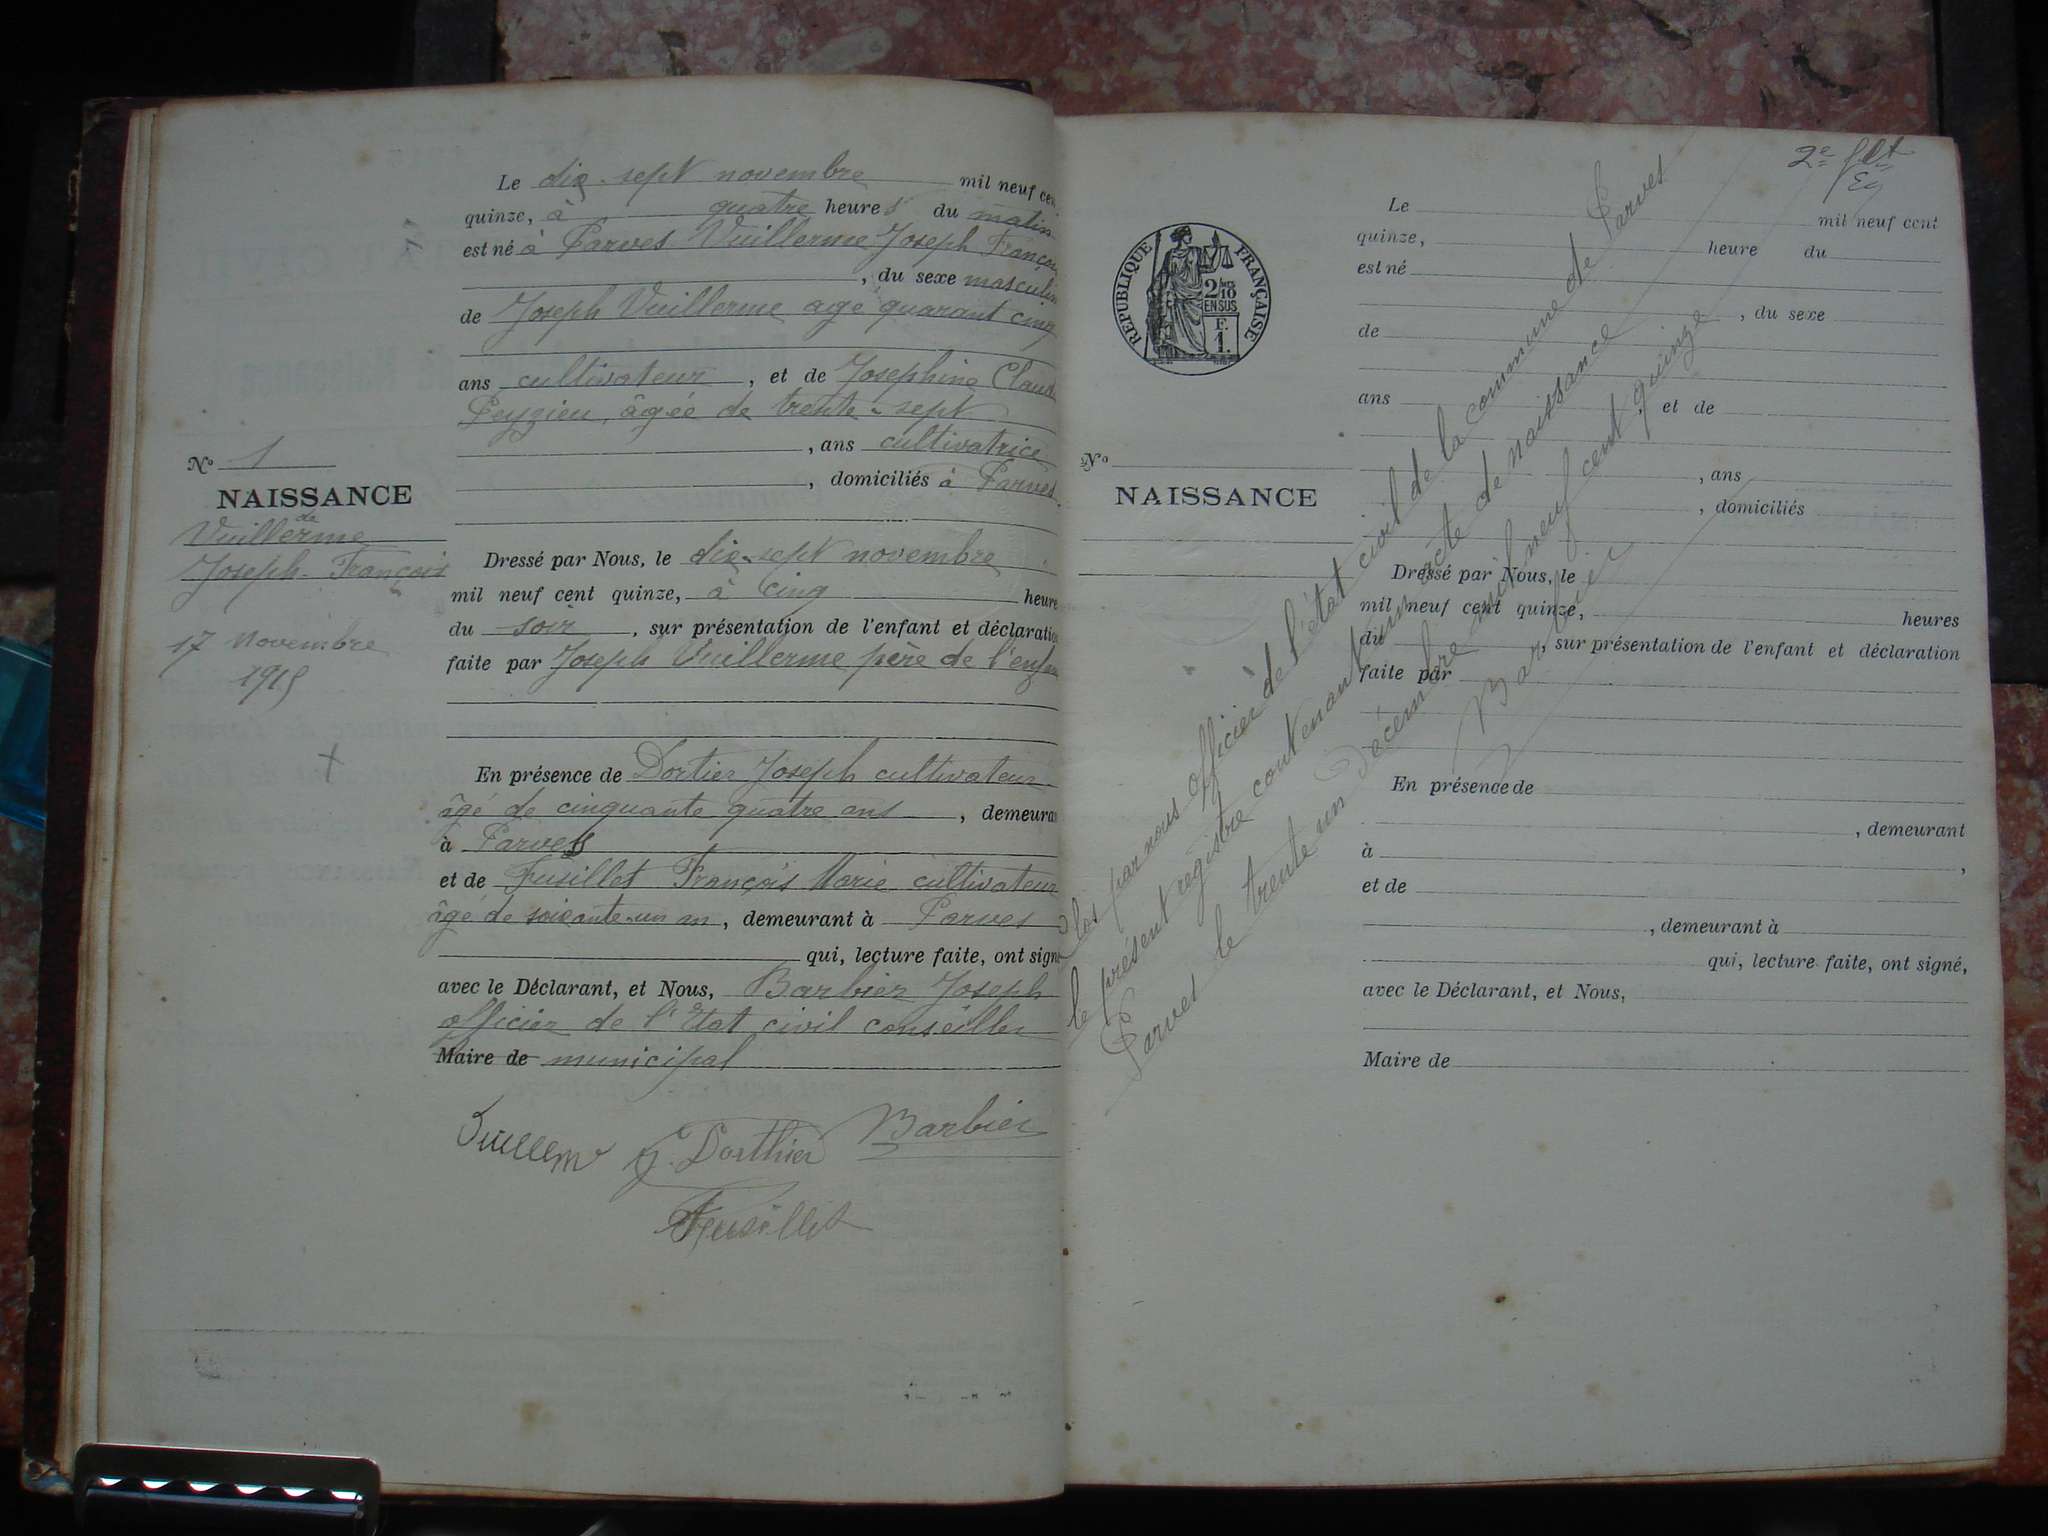 Le dix-sept novembre mil neuf cen
quinze, à quatre heures du matin
est né à Parves Vuillerme Joseph François
, du sexe masculin
de Joseph Vuillerme age quarant cinq
ans cultivateur, et de Josephine Claud
Peyzieu, âgée de trente-sept
, ans cultivatrice
, domiciliés à Parves
No 1
NAISSANCE
de
Vuillerme
Joseph-François
17 Novembre
1915
Dressé par Nous, le dix-sept novembre
mil neuf cent quinze, à cinq heure
du soir, sur présentation de l'enfant et déclaration
faite par Joseph Vuillerme père de l'enfan
En présence de Dortier Joseph cultivateur
âgé de cinquante quatre ans, demeuran
à Parves
et de Fusillet François Marie cultivateur
âgé de soixante-un an, demeurant à Parves
qui, lecture faite, ont signé
avec le Déclarant, et Nous, Barbier Joseph
officier de l'Etat civil conseiller
Maire de municipal
Vuillerme J. Dorthier Barbier
Fusillet
2e
RÉPUBLIQUE FRANÇAISE
2/10
EN SUS
F.
1.
Le mil neuf cent
quinze, heure du
est né
, du sexe
de
ans , et de
, ans
, domiciliés
No
NAISSANCE
Dressé par Nous, le
mil neuf cent quinze, heures
du , sur présentation de l'enfant et déclaration
faite par
En présence de
, demeurant
à ,
et de
, demeurant à
qui, lecture faite, ont signé,
avec le Déclarant, et Nous,
Maire de
Clos par nous officier de l'état civil de la commune de Parves
le présent registre contenant un acte de naissance
Parves le trente un décembre mil neuf cent quinze
Barbier